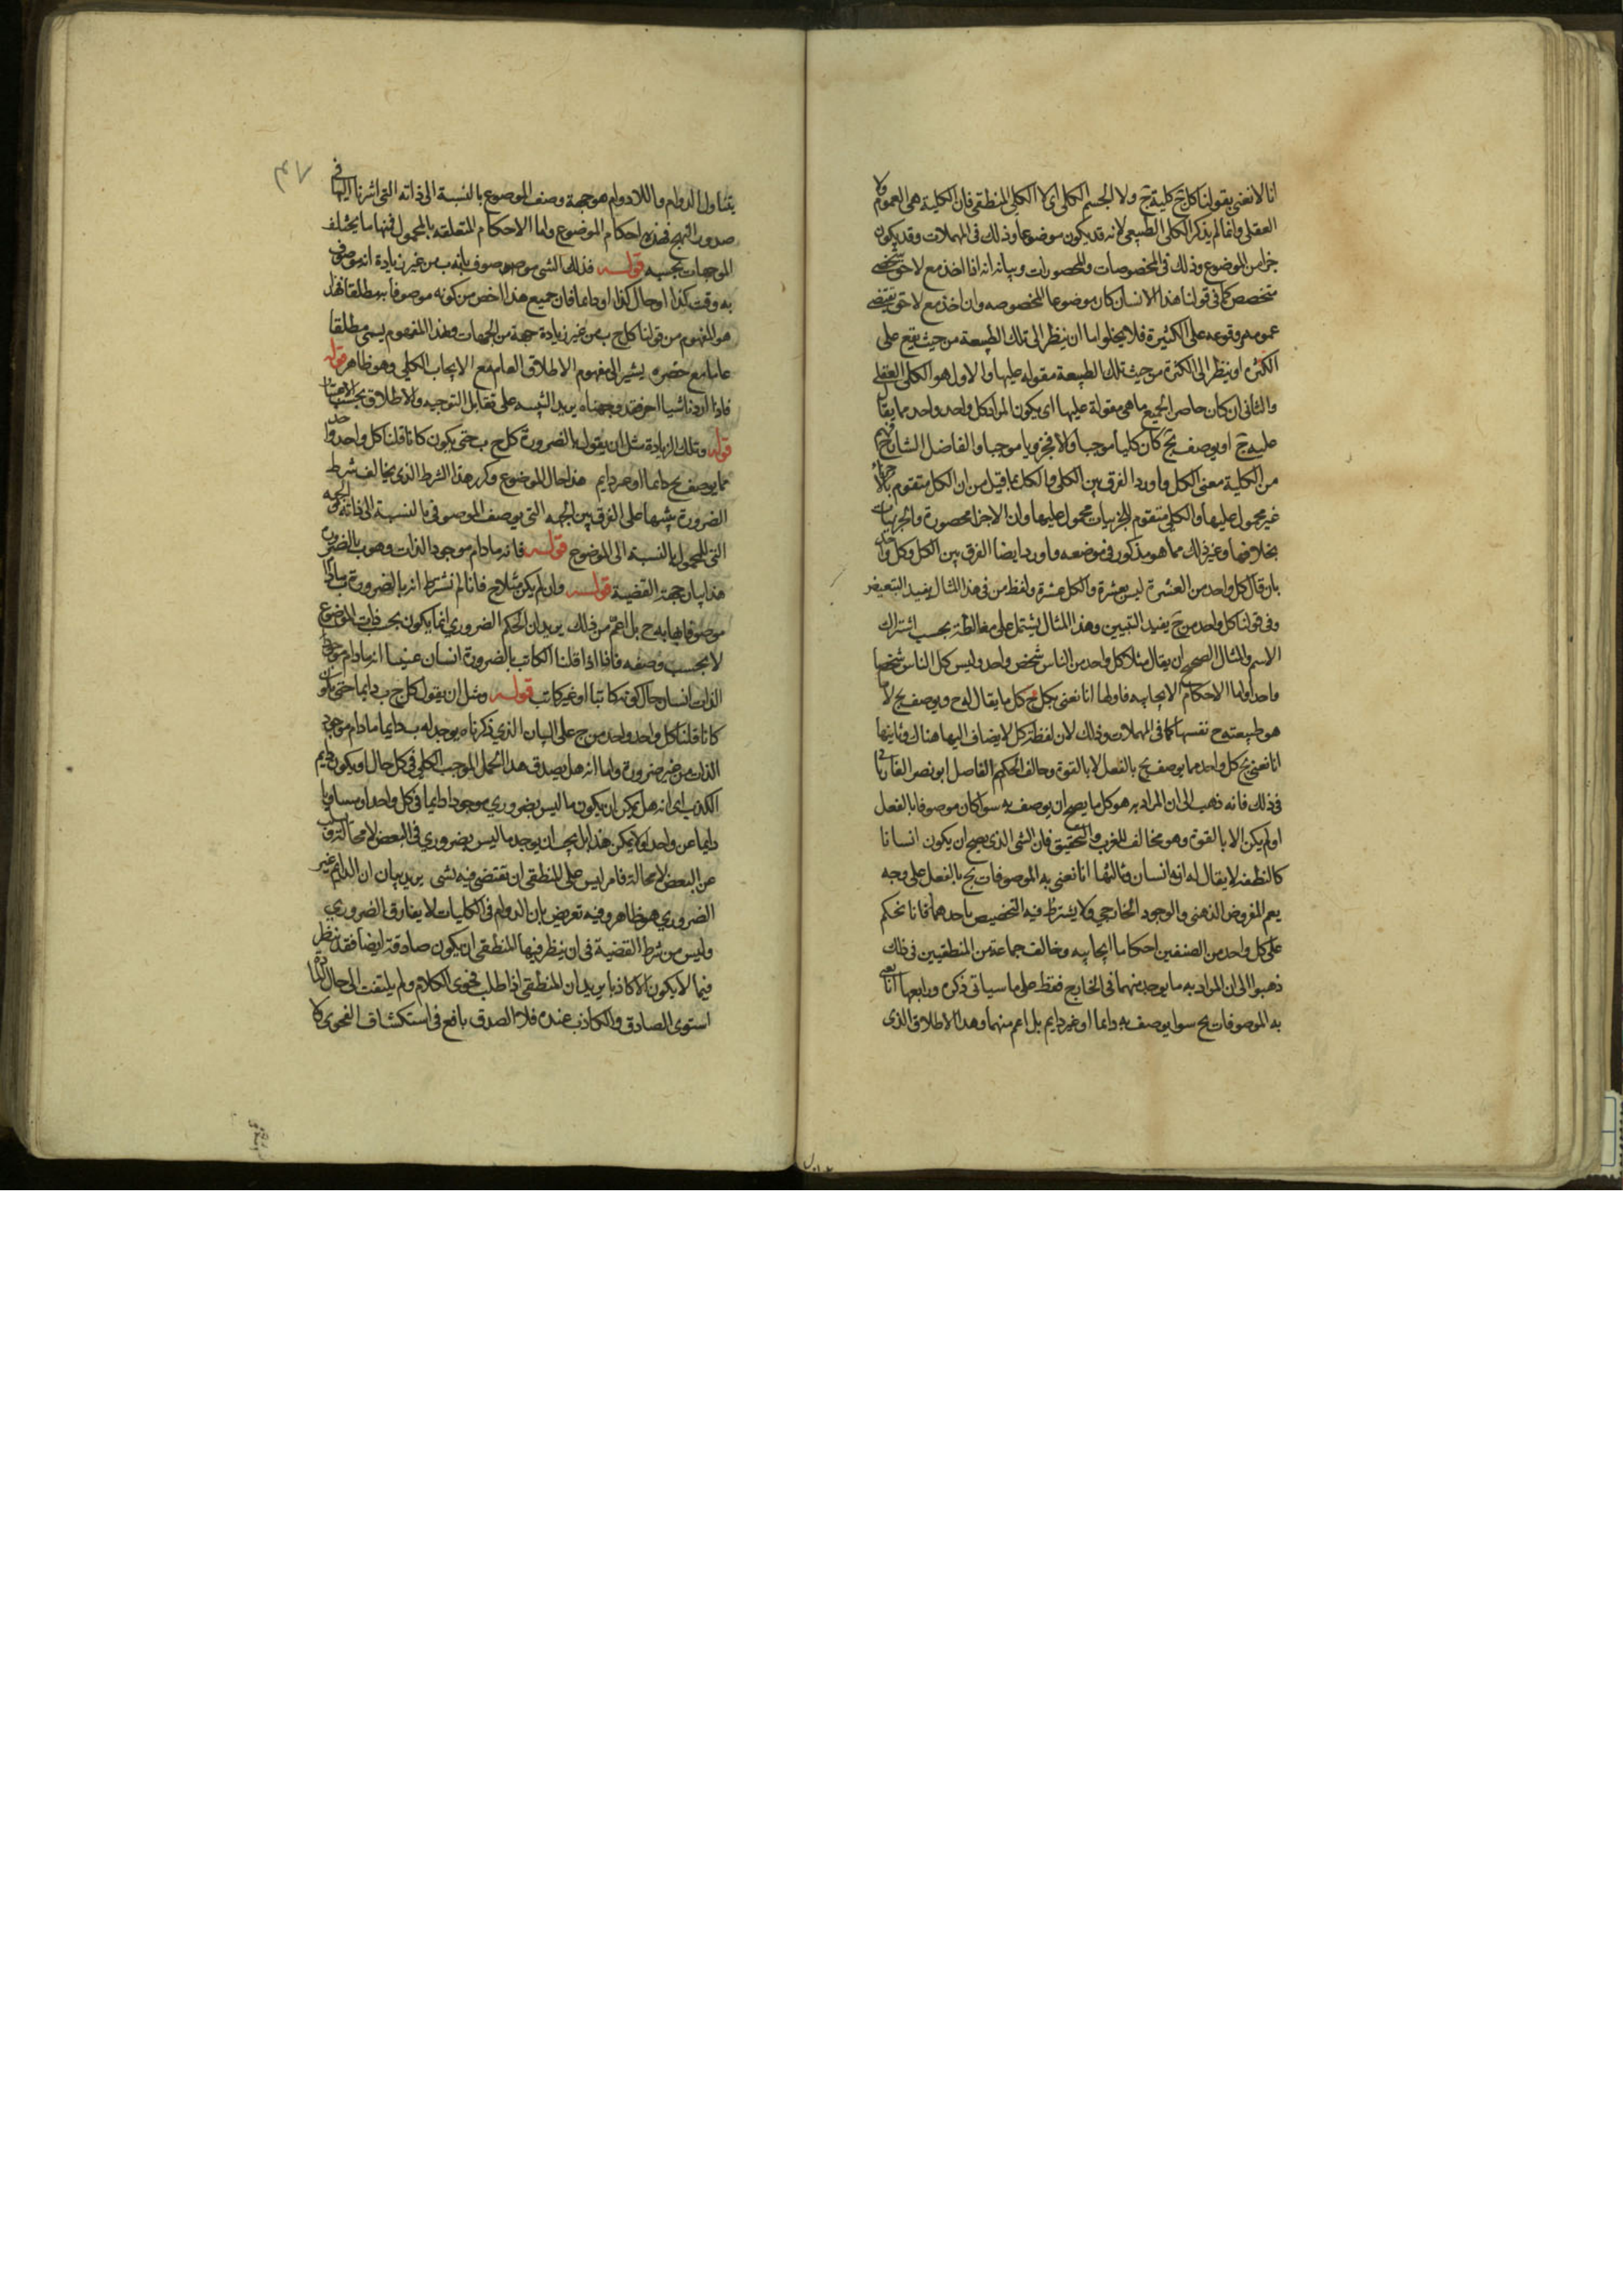 انا لا نعنى بقولنا كل ج كلية ج ولا الجسم الكلى اى لا الكلى المنطقى فان الكلية هى العموم ولا
العقلى وانما لم يذكر الكلى الطبيعى لانه قد يكون موضوعا وذلك فى المهملات وقد يكون
جزا من الموضوع وذلك فى المخصوصات والمحصورات وبيانه انه اذا اخذ مع لاحق شخصى
متخصص كما فى قولنا هذا الانسان كان موضوعا للمخصوصه وان اخذ مع لاحق يقتضى
عمومه ووقوعه على الكثيرة فلا يخلوا اما ان ينظر الى تلك الطبيعة من حيث تقع على
الكثرة او ينظر الى الكثرة من حيث تلك الطبيعة مقوله عليها والاول هو الكلى العقلى
والثانى ان كان حاصرا لجميع ما هى مقولة عليها اى يكون المراد كل واحد واحد مما يقال
عليه ج او يوصف بج كان كليا موجبا والا فجزويا موجبا والفاضل الشارح فهم
من الكلية معنى الكل واورد الفرق بين الكلى والكل بما قيل من ان الكل متقوم بالاجزاء
غير محمول عليها والكلى متقوم للجزييات محمول عليها وان الاجزا محصورة والجزييات
بخلافها وغير ذلك مما هو مذكور فى موضعه واورد ايضا الفرق بين الكل وكل واحد
بان قال كل واحد من العشرة ليس بعشرة والكل عشرة ولفظ من فى هذا المثال يفيد التبعيض
وفى قولنا كل واحد من ج يفيد التبيين وهذا المثال يشتمل على مغالطة بحسب اشتراك
الاسم والمثال الصحيح ان يقال مثلا كل واحد من الناس شخص واحد وليس كل الناس شخصا
واحدا واما الاحكام الايجابيه فاولها انا نعنى بكل ج كل ما يقال له ج ويوصف بج لا ما
هو طبيعته ج نفسها كما فى المهملات وذلك لان لفظة كل لا يضاف اليها هناك وثانيها
انا نعنى بج كل واحد مما يوصف بج بالفعل لا بالقوة وخالف الحكيم الفاضل ابو نصر الفارابى
فى ذلك فانه ذهب الى ان المراد به هو كل ما يصح ان يوصف به سوا كان موصوفا بالفعل
او لم يكن الا بالقوة وهو مخالف للعرف والتحقيق فان الشى الذى يصح ان يكون انسانا
كالنطفة لا يقال له انه انسان وثالثها انا نعنى به الموصوفات بج بالفعل على وجه
يعم المفروض الذهنى والوجود الخارجي ولا يشترط فيه التخصيص باحدهما فانا نحكم
على كل واحد من الصنفين احكاما ايجابيه وخالف جماعة من المنطقيين فى ذلك
ذهبوا الى ان المراد به ما يوجد منهما فى الخارج فقط على ما سياتى ذكره ورابعها انا نعنى
به الموصوفات بج سوا يوصف به دايما او غير دايم بل اعم منهما وهذا الاطلاق الذى
٤٧
يتناول الدوام واللادوام هو جهة وصف الموضوع بالنسبة الى ذاته التى اشرنا اليها فى
صدور النهج فهذه احكام الموضوع واما الاحكام المتعلقه بالمحمول فمنها ما يختلف
الموجهات بحسبه قوله فذلك الشى موصوف بانه ب من غير زيادة انه موصوف
به وقت كذا او حال كذا او دايما فان جميع هذا اخص من كونه موصوفا به مطلقا فهذا
هو المفهوم من قولنا كل ج ب من غير زيادة جهة من الجهات وهذا المفهوم يسمى مطلقا
عاما مع حصره يشير الى مفهوم الاطلاق العام مع الايجاب الكلى وهو ظاهر قوله
فاذا اردنا شيا اخر فقد وجهناه يريد التنبيه على تقابل التوجيه والاطلاق بحسب الاعتبار
قوله وتلك الزيادة مثل ان يقول بالضرورة كل ج ب حتى يكون كانا قلنا كل واحد واحد
مما يوصف بج دايما او غير دايم هذا حال الموضوع وكرر هذا الشرط الذى يخالف شرط
الضرورة تنبيها على الفرق بين الجهه التى يوصف الموصوف بالنسبة الى ذاته والجهه
التى للمحمول بالنسبة الى الموضوع قوله فانه ما دام موجود الذات وهو ب بالضرورة
هذا بيان جهة القضية قوله وان لم يكن مثلا ج فانا لم نشترط انه بالضرورة ب ما دام
موصوفا بانه ج بل اعم من ذلك يريد ان الحكم الضرورى انما يكون بحسب ذات الموضوع
لا بحسب وصفه فانا اذا قلنا الكاتب بالضرورة انسان عنينا انه ما دام موجود
الذات انسان حال كونه كاتبا او غير كاتب قوله ومثل ان يقول كل ج ب دايما حتى يكون
كانا قلنا كل واحد واحد من ج على البيان الذي ذكرناه يوجد له ب دايما ما دام موجود
الذات من غير ضرورة واما انه هل يصدق هذا الحمل الموجب الكلى فى كل حال او يكون دايم
الكذب اى انه هل يمكن ان يكون ما ليس بضروري موجودا دايما فى كل واحد او مسلوبا
دايما عن واحد او لا يمكن هذا بل يجب ان يوجد ما ليس بضروري فى البعض لا محالة ويسلب
عن البعض لا محالة فامر ليس على المنطقى ان يقتضى فيه بشى يريد بيان ان الدايم غير
الضروري هو ظاهر وفيه تعريض بان الدوام فى الكليات لا يفارق الضروري
وليس من شرط القضية فى ان ينظر فيها المنطقى ان يكون صادقة ايضا فقد ينظر
فيما لا يكون الا كاذبا يريد ان المنطقى اذا طلب فحوى الكلام ولم يلتفت الى حال المادة
استوى الصادق والكاذب عنده فلا الصدق بنافع فى استكشاف الفحوى ولا